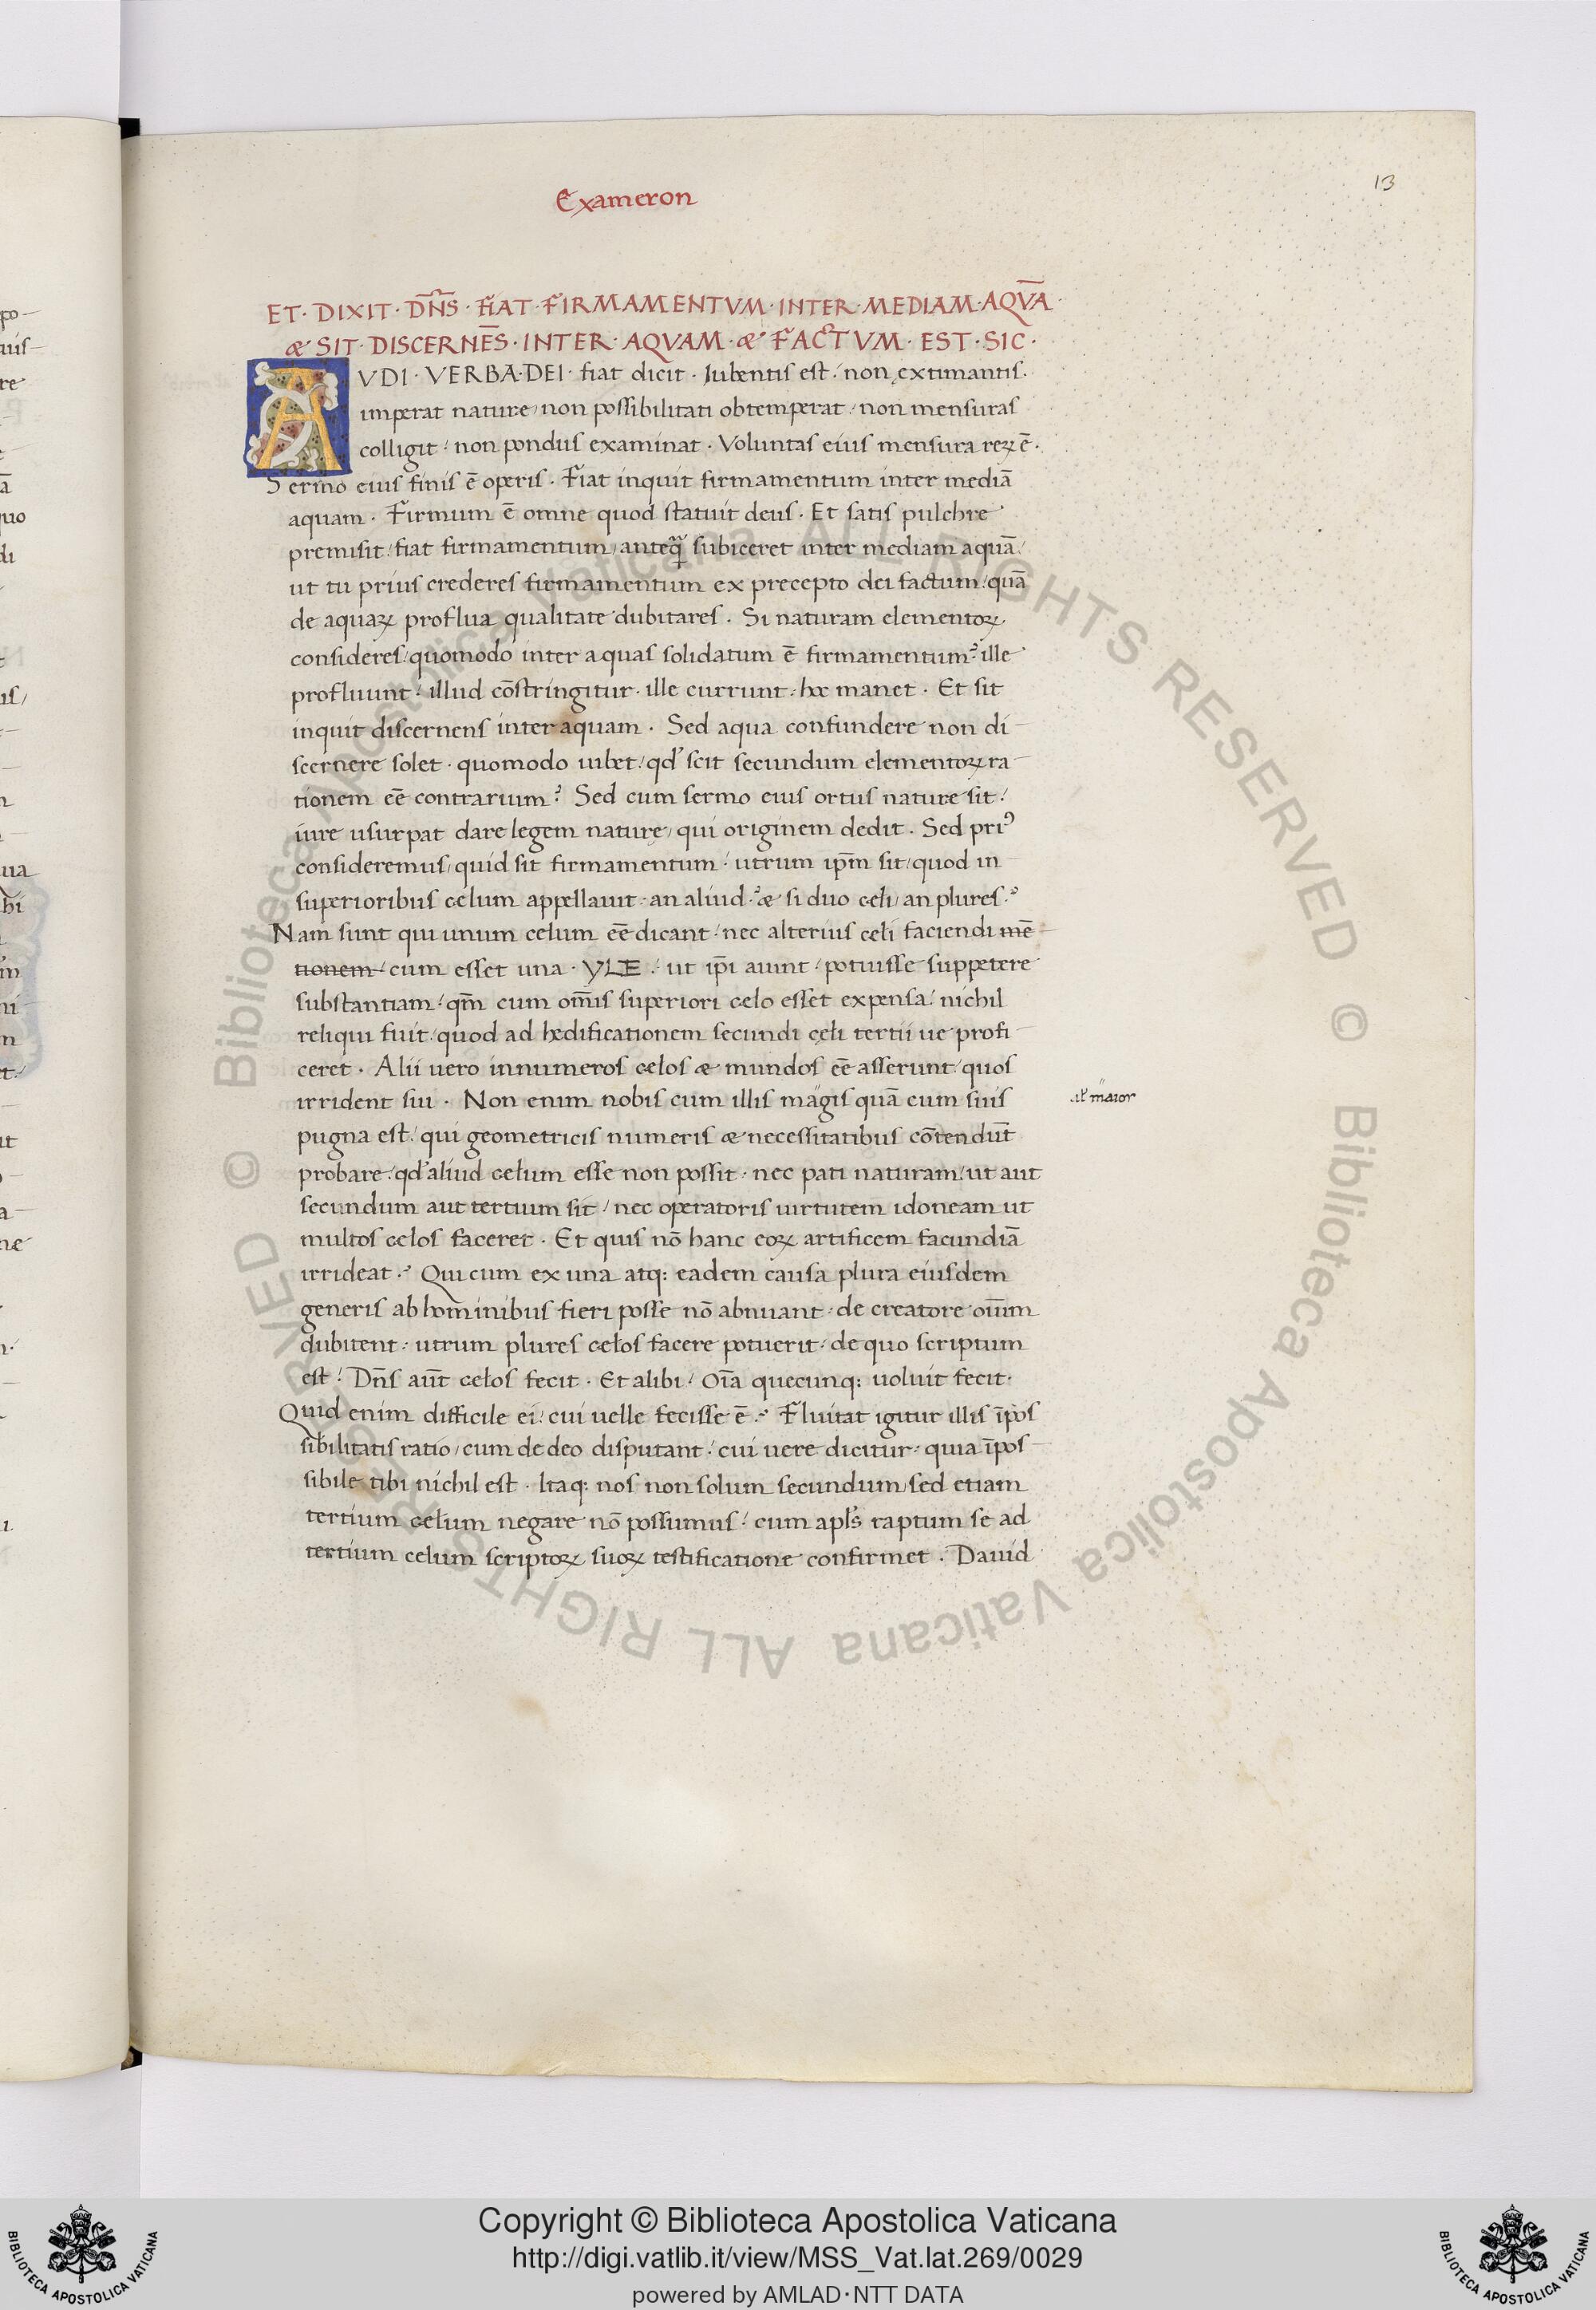 Exameron
13
ET · DIXIT · DN̄S · FIAT · FIRMAMENTVM · INTER · MEDIAM · AQVĀ ·
æ SIT · DISCERNĒS · INTER · AQVAM · æ FACTVM · EST · SIC ·
AVDI · VERBA · DEI · fiat dicit · Iubentis est · non extimantis ·
imperat nature / non possibilitati obtemperat / non mensuras
colligit / non pondus examinat · Voluntas eius mensura reꝝ ē ·
Sermo eius finis ē operis · Fiat inquit firmamentum inter mediā
aquam · Firmum ē omne quod statuit deus · Et satis pulchre
premisit / fiat firmamentum / anteq̄ subiceret inter mediam aquā /
ut tu prius crederes firmamentum ex precepto dei factum / quā
de aquaꝝ proflua qualitate dubitares · Si naturam elementoꝝ
consideres / quomodo inter aquas solidatum ē firmamentum? ille
profluunt / illud cōstringitur · ille currunt · hoc manet · Et sit
inquit discernens inter aquam · Sed aqua confundere non di
scernere solet · quomodo iubet / qd̓ scit secundum elementoꝝ ra
tionem eē contrarium? Sed cum sermo eius ortus nature sit /
iure usurpat dare legem naturę / qui originem dedit · Sed priꝰ
consideremus / quid sit firmamentum · utrum ip̄m sit / quod in
superioribus celum appellauit · an aliud? æ si duo celi / an plures?
Nam sunt qui unum celum eē dicant / nec alterius celi faciendi mē
tionem / cum esset una · YLE · / ut ip̄i aiunt / potuisse suppetere
substantiam / qm̄ cum om̄is superiori celo esset expensa / nichil
reliqui fuit / quod ad hedificationem secundi cęli tertii ue profi
ceret · Alii uero innumeros celos æ mundos eē asserunt / quos
irrident sui · Non enim nobis cum illis magis quā cum suis
al̓ maior
pugna est / qui geometricis numeris æ necessitatibus cōtendūt
probare / qd̓ aliud celum esse non possit · nec pati naturam / ut aut
secundum aut tertium sit / nec operatoris uirtutem idoneam ut
multos celos faceret · Et quis nō hanc eoꝝ artificem facundiā
irrideat? Qui cum ex una atq: eadem causa plura eiusdem
generis ab hominibus fieri posse nō abnuant · de creatore oīum
dubitent · utrum plures celos facere potuerit · de quo scriptum
est / Dn̄s aūt celos fecit · Et alibi / Oīa quecunq: uoluit fecit ·
Quid enim difficile ei / cui uelle fecisse ē? Fluitat igitur illis īpos
sibilitatis ratio / cum de deo disputant / cui uere dicitur · quia īpos
sibile tibi nichil est · Itaq: nos non solum secundum / sed etiam
tertium celum negare nō possumus / cum apl̓s raptum se ad
tertium celum scriptoꝝ suoꝝ testificatione confirmet · Dauid
© Biblioteca Apostolica Vaticana ALL RIGHTS RESERVED © Biblioteca Apostolica Vaticana ALL RIGHTS RESERVED
Copyright © Biblioteca Apostolica Vaticana
http://digi.vatlib.it/view/MSS_Vat.lat.269/0029
powered by AMLAD·NTT DATA
BIBLIOTECA APOSTOLICA VATICANA
BIBLIOTECA APOSTOLICA VATICANA